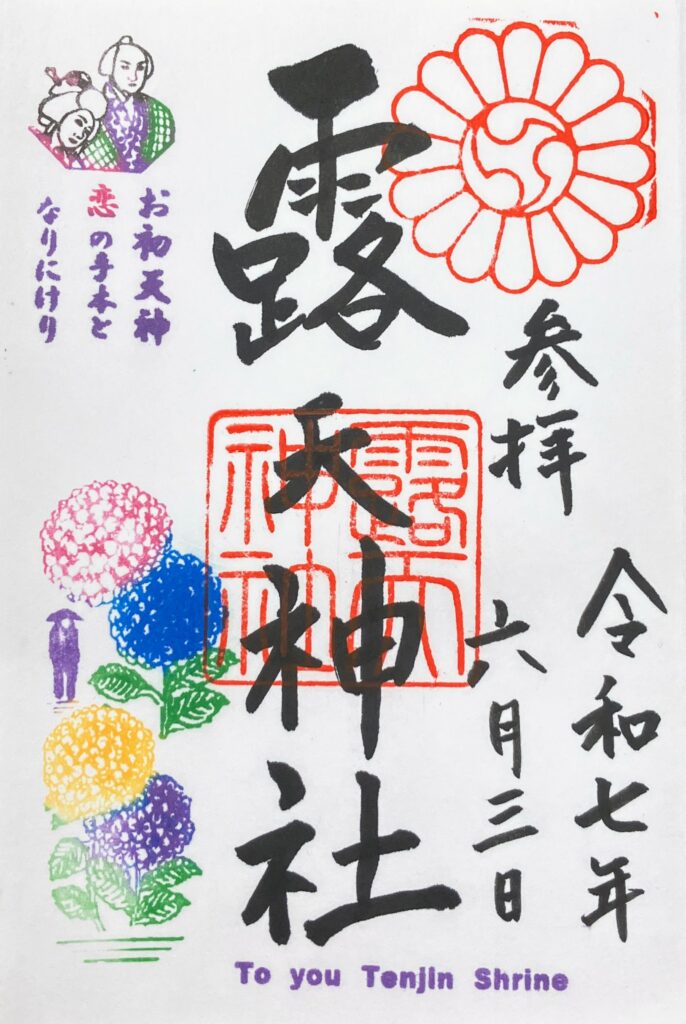 参拝
令和七年
六月三日
露天神社
露天
神社
お初天神
恋の手本と
なりにけり
To you Tenjin Shrine